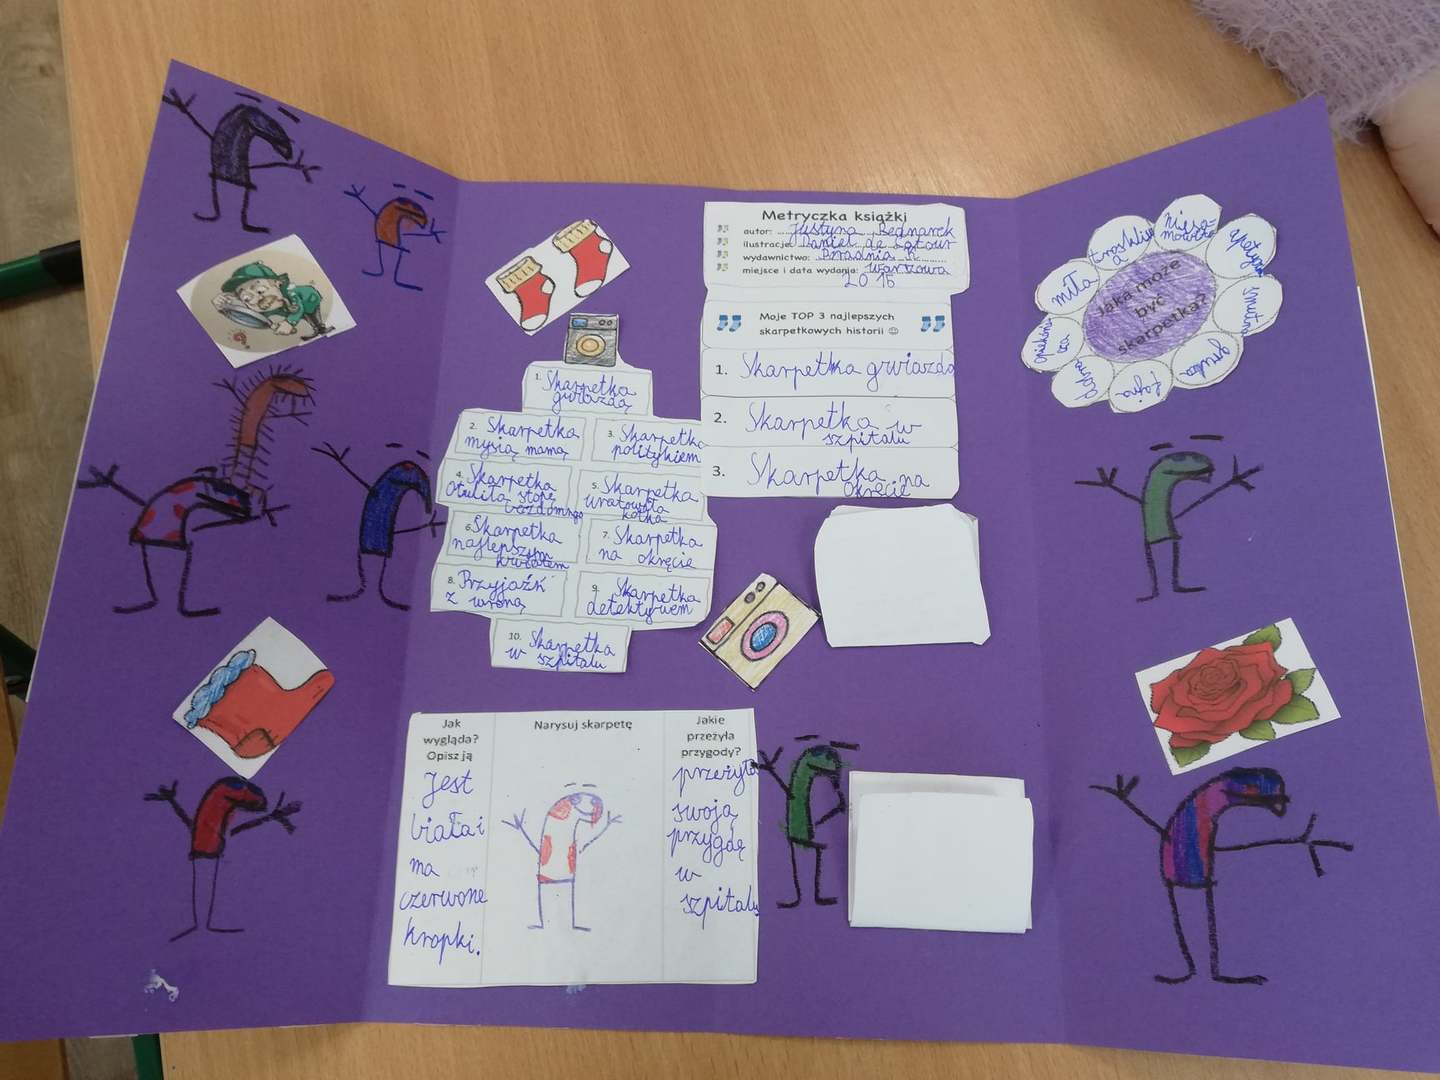 Metryczka książki
autor: Justyna Bednarek
ilustracje: Daniel de Latour
wydawnictwo: Poradnia K
miejsce i data wydania: Warszawa
2016
Moje TOP 3 najlepszych
skarpetkowych historii ☺
1. Skarpetka gwiazdą
2. Skarpetka w
szpitalu
3. Skarpetka na
okręcie
1. Skarpetka
gwiazdą
2. Skarpetka
mysią mamą
3. Skarpetka
politykiem
4. Skarpetka
Otuliła stopę
bezdomnego
5. Skarpetka
uratowała
kotka
6. Skarpetka
najlepszym
kwiatem
7. Skarpetka
na okręcie
8. Przyjaźń
z wroną
9. Skarpetka
detektywem
10. Skarpetka
w szpitalu
Jaka może
być
skarpetka?
miła
troskliwa
niesa=
mowita
smutna
gruba
fajna
Jak
wygląda?
Opisz ją
Jest
biała i
ma
czerwone
kropki.
Narysuj skarpetę
Jakie
przeżyła
przygody?
przeżyła
swoją
przygdę
w
szpitalu